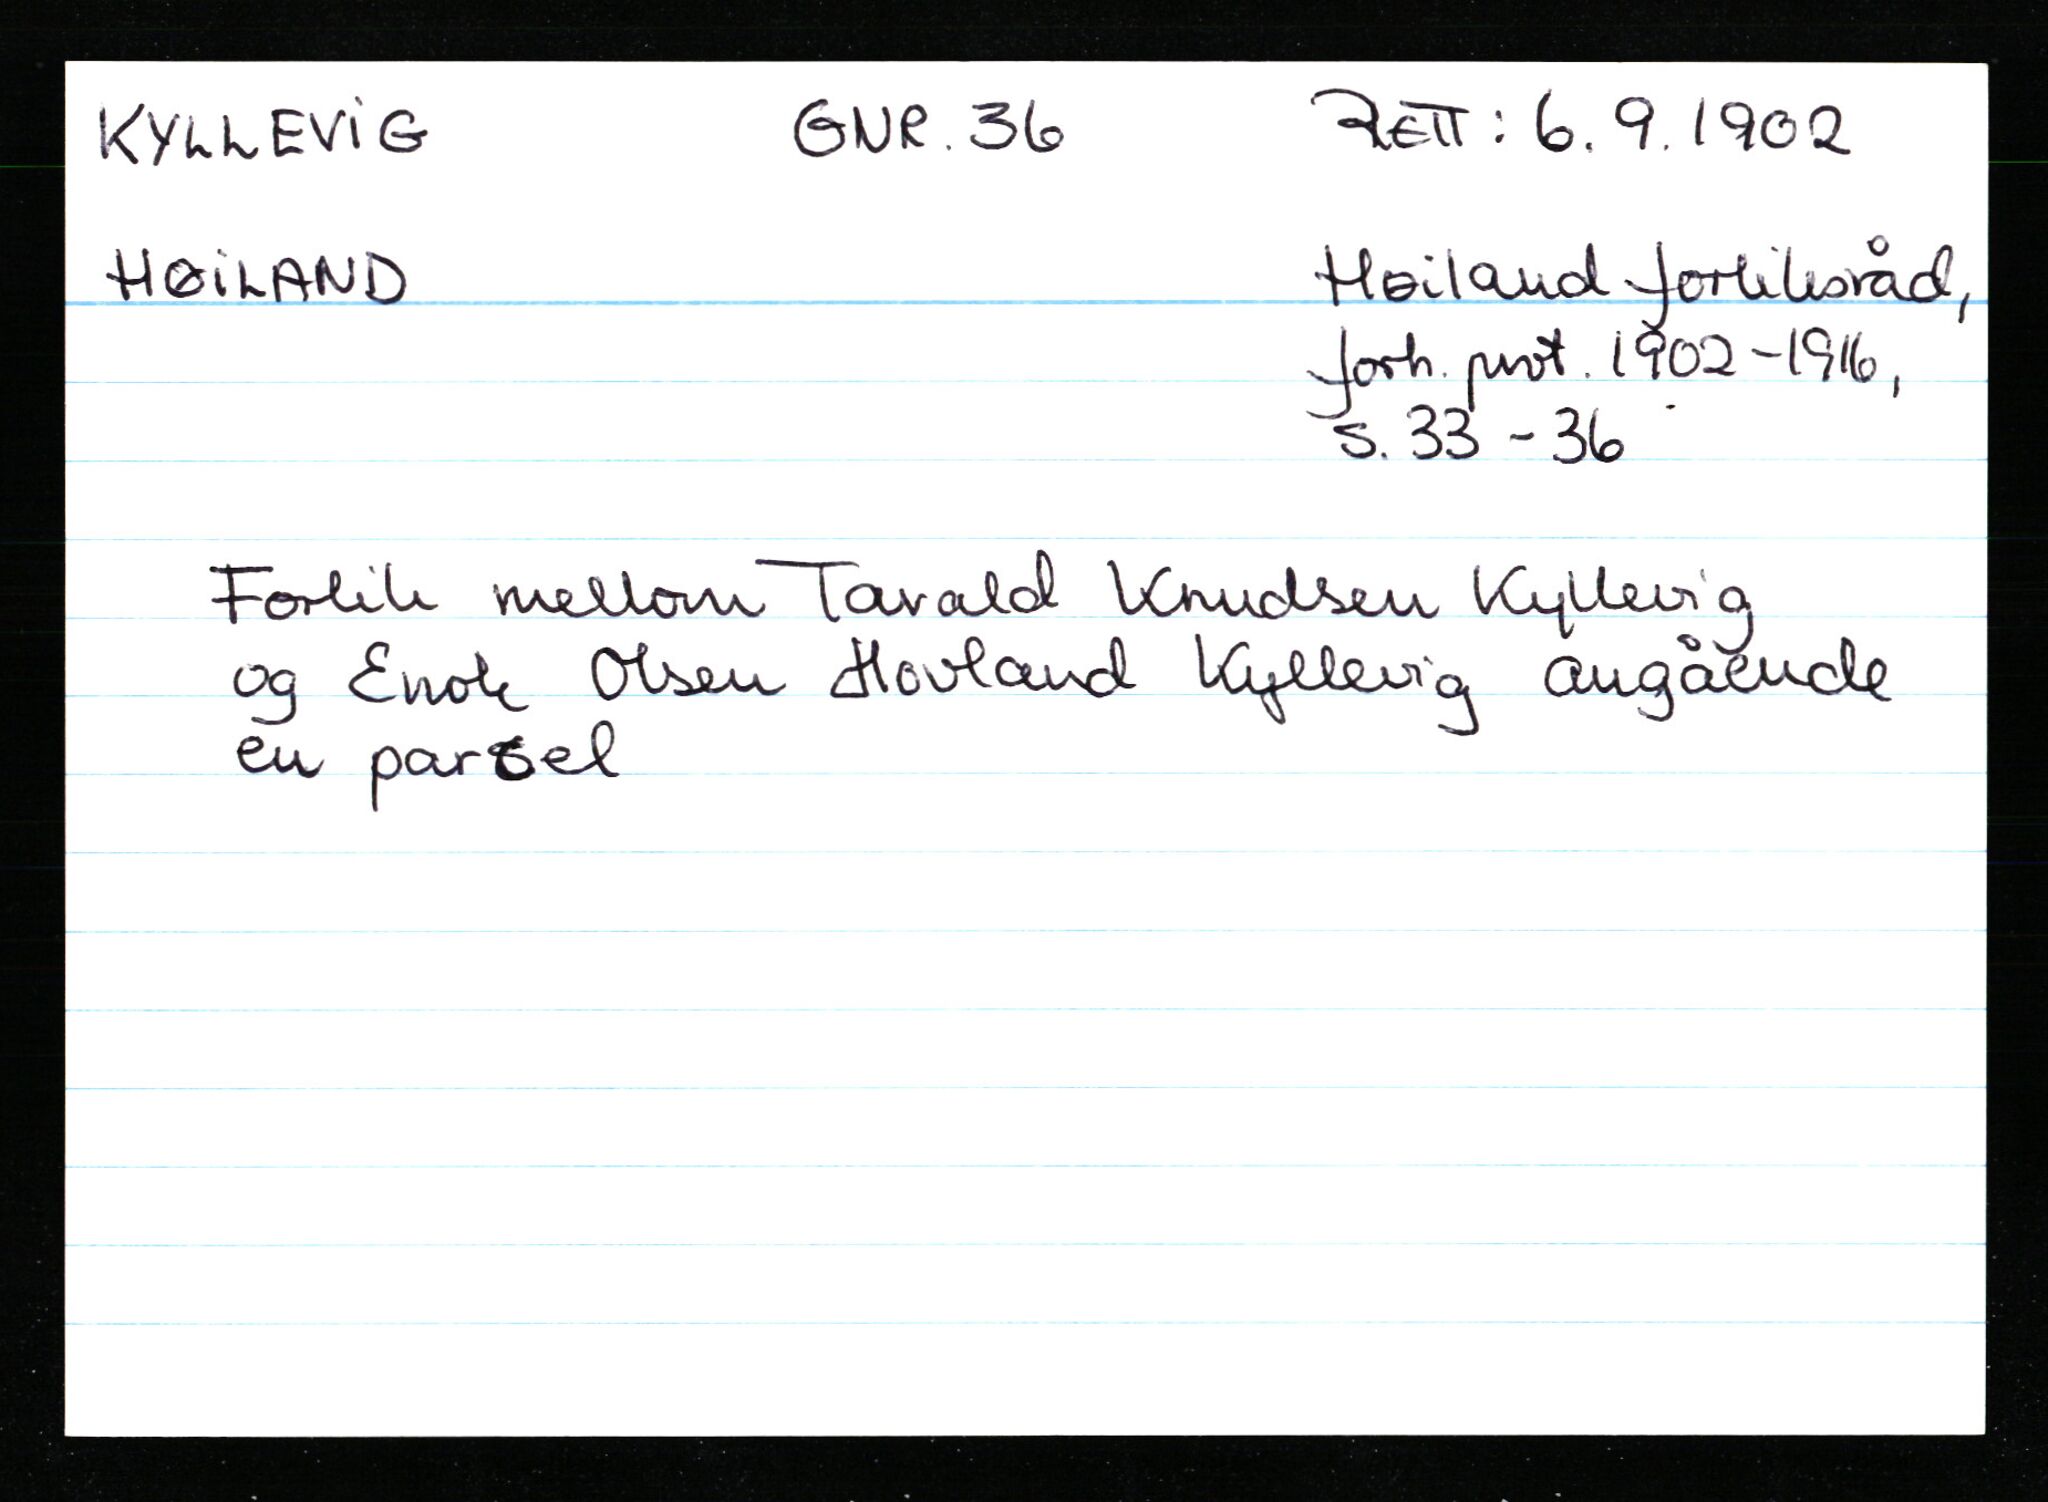 KYLLEVIG GNR. 36 RETT: 6.9.1902
HØILAND Høiland forliksråd,
forh. prot. 1902-1916,
s. 33-36
Forlik mellom Tarald Knudsen Kyllevig
og Enok Olsen Hovland Kyllevig angående
en parsel